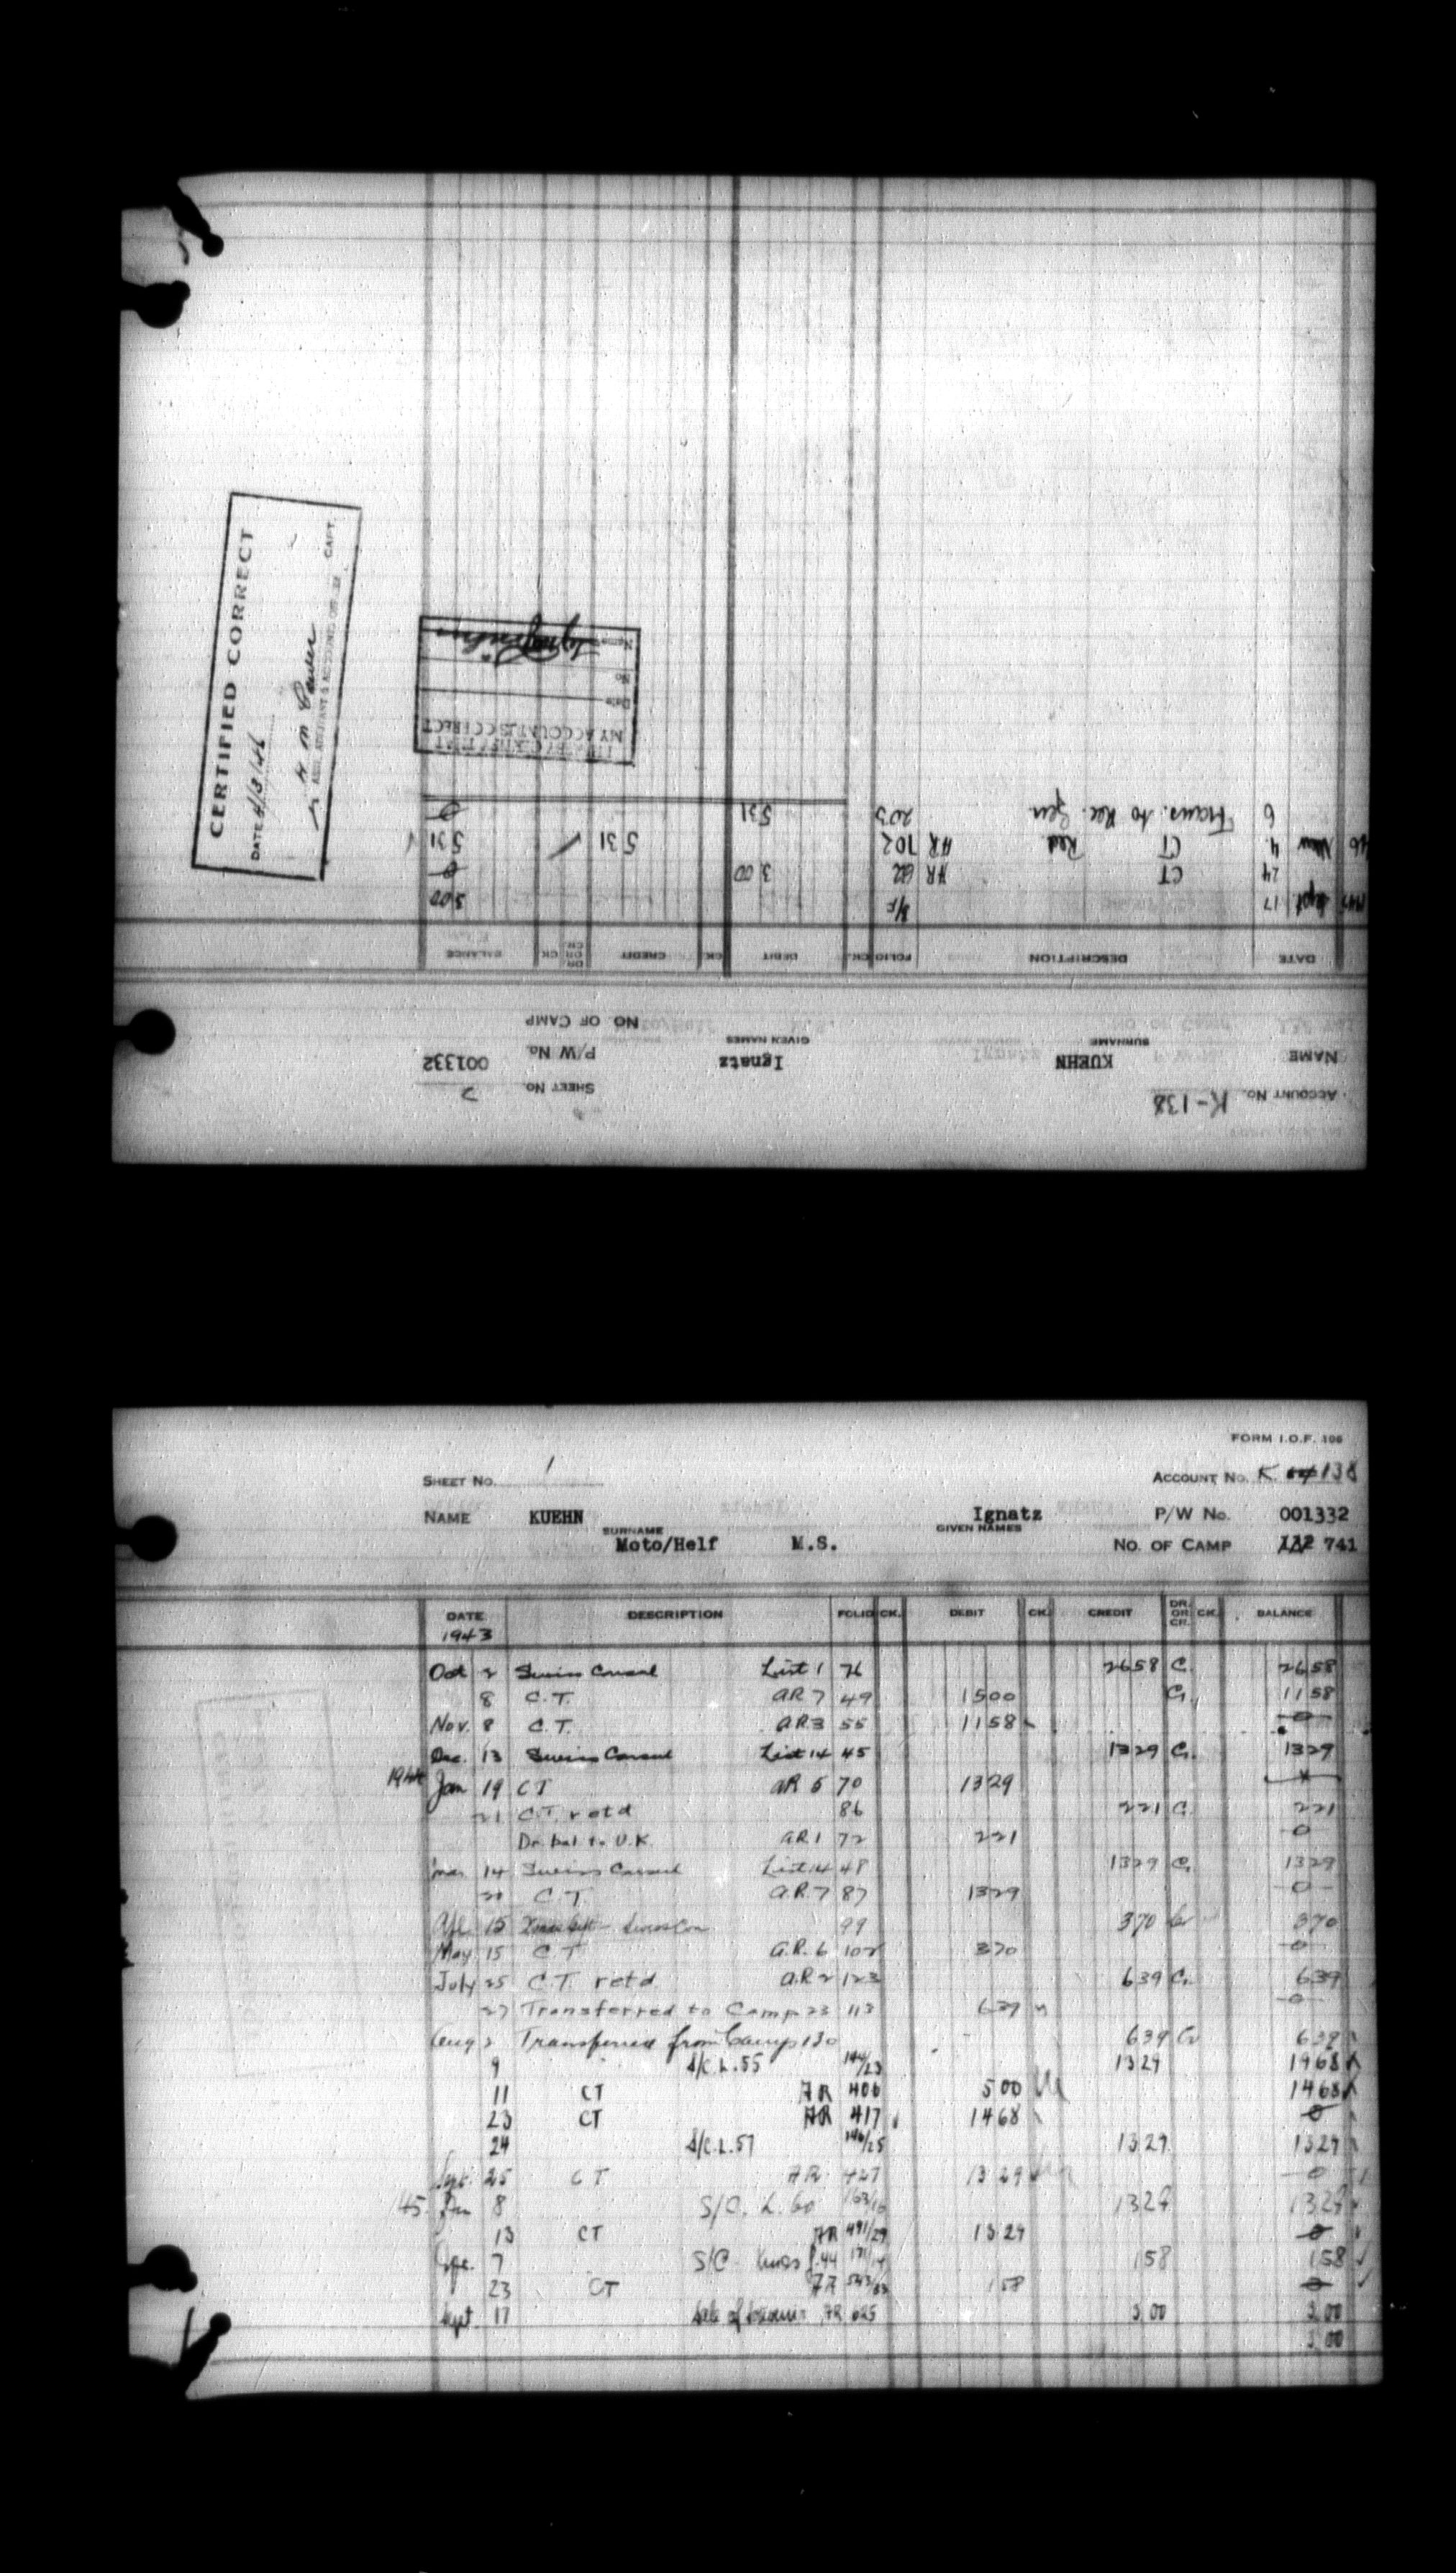 CERTIFIED CORRECT
DATE 4/3/46
CAPT.
MY ACCOUNT IS CORRECT
Date
No
Name
ACCOUNT No. K-138
SHEET No. 2
NAME KUEHN Ignatz P/W No. 001332
SURNAME GIVEN NAMES NO. OF CAMP
DATE DESCRIPTION FOLIO CK. DEBIT CK. CREDIT DR. OR CR. CK. BALANCE
1945 Sept 17 B/F 3 00
24 CT AR 3 00 0
46 Mar 4 CT Red AR 702 5 31 5 31
6 Trans. to Rec. Gen 203 5 31 0
FORM I.O.F. 106
SHEET No. 1 ACCOUNT No. K. 138
NAME KUEHN Ignatz P/W No. 001332
SURNAME GIVEN NAMES
Moto/Helf M.S. NO. OF CAMP 132 741
DATE DESCRIPTION FOLIO CK. DEBIT CK. CREDIT DR. OR CR. CK. BALANCE
1943
Oct 2 Swiss Consul List 1 76 26 58 C. 26 58
8 C.T. AR 7 49 15 00 Cr. 11 58
Nov. 8 C.T. AR 3 55 11 58 0
Dec. 13 Swiss Consul List 14 45 13 29 Cr. 13 29
1944 Jan 19 CT AR 5 70 13 29
21 C.T. retd 86 2 21 C. 2 21
Dr. bal to U.K. AR 1 72 2 21 0
Mar 14 Swiss Consul List 14 48 13 29 Cr 13 29
20 C.T. A.R. 7 87 13 29 0
Apl 15 Swiss Con 99 3 70 Cr 3 70
May 15 C T A.R. 6 102 3 70 0
July 25 C.T. ret'd A.R. 2 123 6 39 Cr. 6 39
27 Transferred to Camp 23 113 6 39 0
Aug 2 Transferred from Camp 130 6 39 Cr 6 39
9 S/C.L. 55 144/23 13 29 19 68
11 CT AR 406 5 00 14 68
23 CT AR 417 14 68 0
24 S/C.L. 57 146/25 13 29 13 29
Sept. 25 C T AR 427 13 29 0
45 Jan 8 S/C. L. 60 163/16 13 29 13 29
13 CT AR 491/29 13 29 0
Apr. 7 S/C Xmas 44 171/14 1 58 1 58
23 CT AR 543/33 1 58 0
Sept 17 Sale of Souvenir AR 625 3 00 3 00
3 00